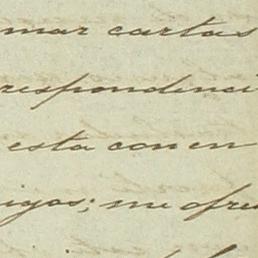 mar cartas
respondenci
esta con en
igos; me ofre